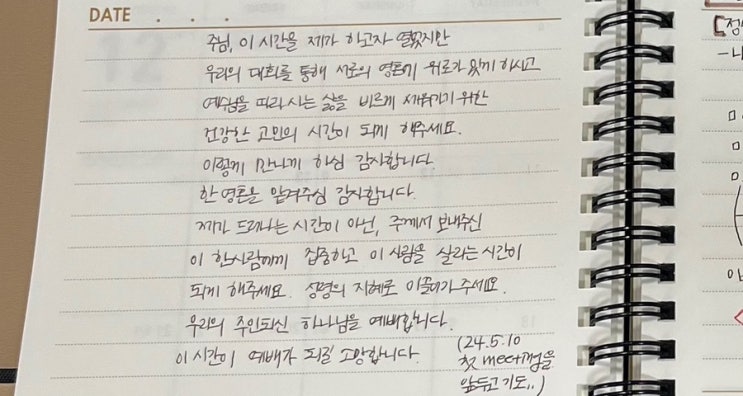 DATE . . .
주님, 이 시간을 제가 하고자 열었지만
우리의 대화를 통해 서로의 영혼에 위로가 있게 하시고
예수님을 따라 사는 삶을 바르게 세워가기 위한
건강한 고민의 시간이 되게 해주세요.
이렇게 만나게 하심 감사합니다
한 영혼을 맡겨주심 감사합니다.
제가 드러나는 시간이 아닌, 주께서 보내주신
이 한사람에게 집중하고 이 사람을 살리는 시간이
되게 해주세요. 성령의 지혜로 이끌어가 주세요.
우리의 주인되신 하나님을 예배합니다.
이 시간이 예배가 되길 소망합니다.
(24.5.10
첫 meeting을
앞두고 기도..)